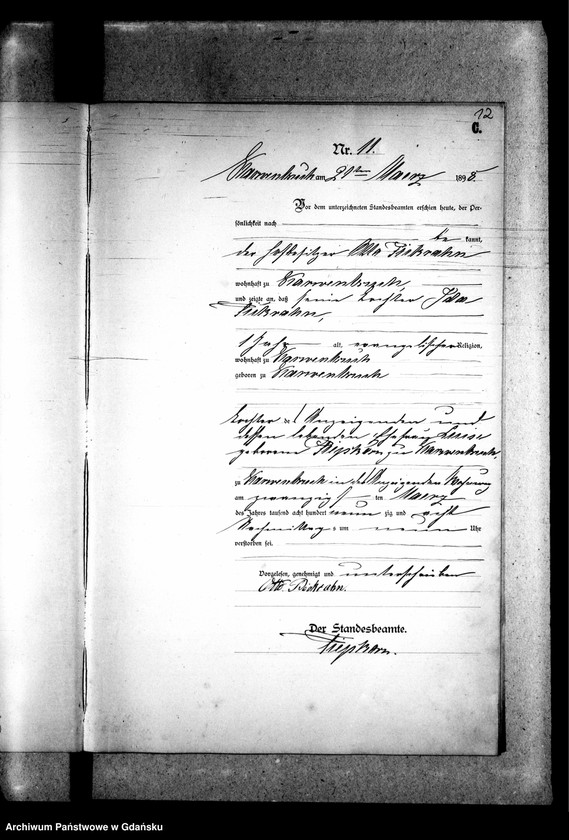 12
C.
Nr. 11.
Karwenbruch am 21ten Maerz 1898.
Vor dem unterzeichneten Standesbeamten erschien heute, der Per-
sönlichkeit nach
be kannt,
der Hofbesitzer Otto
wohnhaft zu Karwenbruch,
und zeigte an, daß seine Tochter Ida
1 Jahr alt, evangelischer Religion,
wohnhaft zu Karwenbruch
geboren zu Karwenbruch
Tochter des Anzeigenden und
dessen lebenden Ehefrau Luise
geborenen zu Karwenbruch,
zu Karwenbruch in des Anzeigenden Wohnung
am zwanzigsten Maerz
des Jahres tausend acht hundert neunzig und acht
Nachmittags um neun Uhr
verstorben sei.
Vorgelesen, genehmigt und unterschrieben
Otto
Der Standesbeamte.
Archiwum Państwowe w Gdańsku